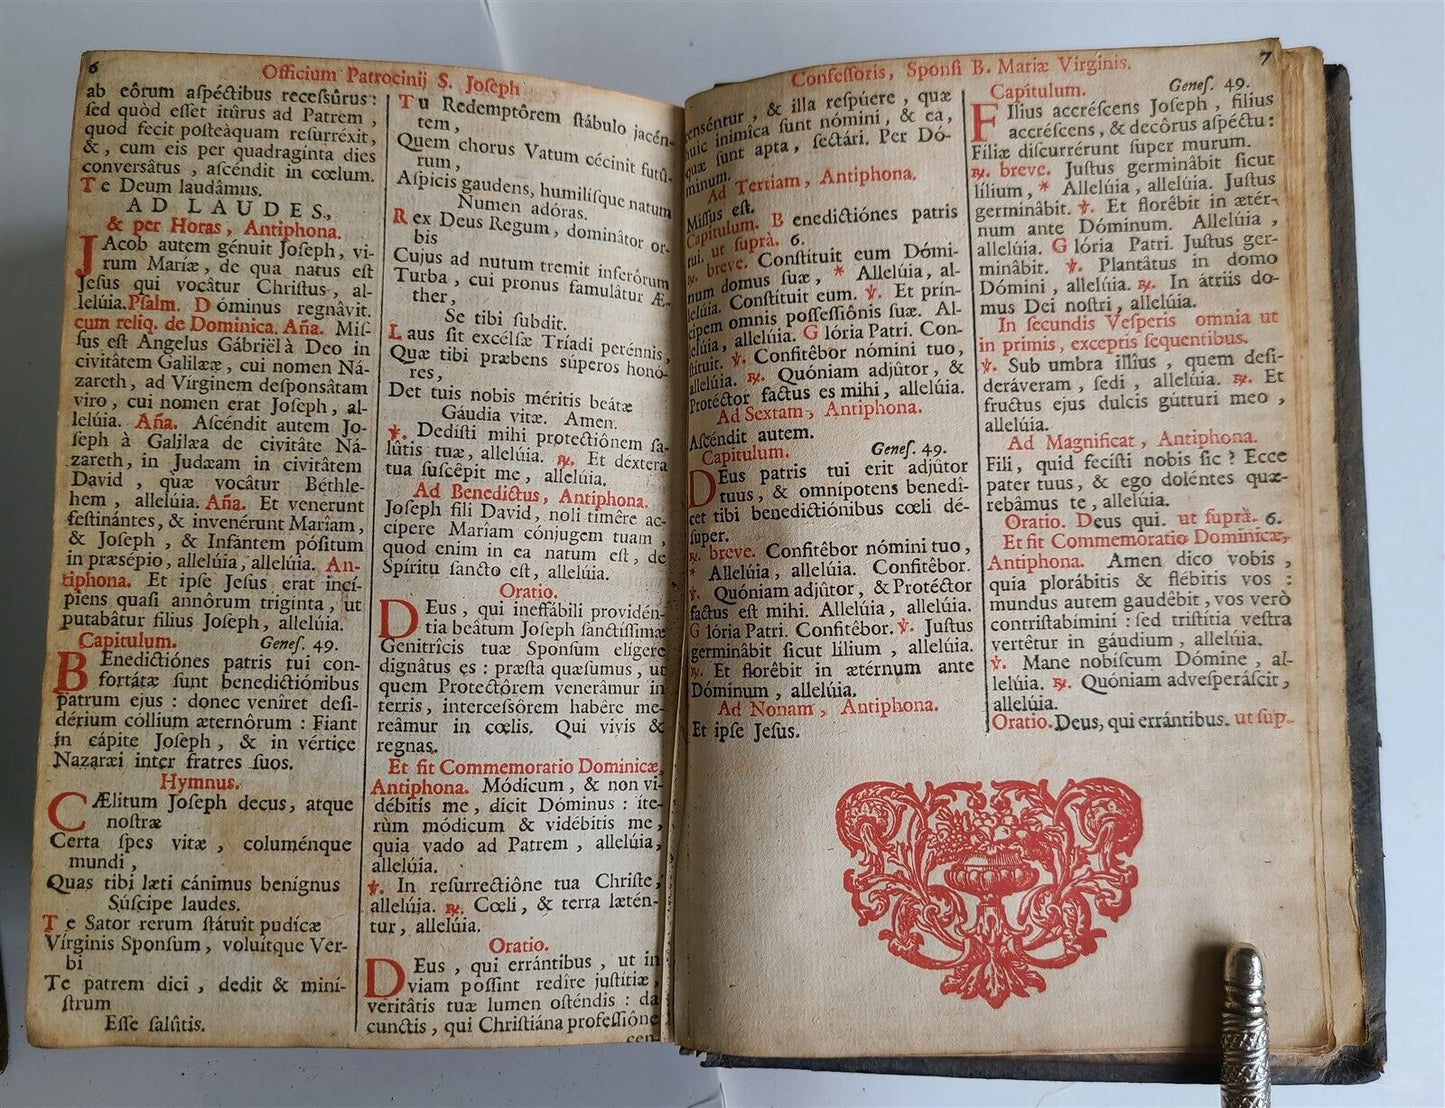 6
Officium Patrocinij S. Joſeph
ab eôrum aſpéctibus receſsûrus :
ſed quòd eſſet itûrus ad Patrem ,
quod fecit poſteàquam reſurréxit,
& , cum eis per quadragínta dies
converſâtus , aſcéndit in cœlum.
Te Deum laudâmus.
AD LAUDES,
& per Horas, Antiphona.
JAcob autem génuit Joſeph, vi-
rum Maríæ, de qua natus eſt
Jeſus qui vocâtur Chriſtus, al-
lelúia. Pſalm. Dóminus regnâvit.
cum reliq. de Dominica. Aña. Miſ-
ſus eſt Angelus Gábriël à Deo in
civitâtem Galilææ , cui nomen Ná-
zareth, ad Vírginem deſponsâtam
viro , cui nomen erat Joſeph, al-
lelúia. Aña. Aſcéndit autem Jo-
ſeph à Galilæa de civitâte Ná-
zareth, in Judæam in civitâtem
David , quæ vocâtur Béthle-
hem , alleluia. Aña. Et venerunt
feſtinántes, & invenérunt Maríam,
& Joſeph , & Infántem póſitum
in præsépio, allelúia, allelúia. An-
tiphona. Et ipſe Jeſus erat incí-
piens quaſi annôrum triginta , ut
putabâtur filius Joſeph, allelúia.
Capitulum. Geneſ. 49.
BEnedictiónes patris tui con-
fortátæ ſunt benedictiónibus
patrum ejus : donec veniret deſi-
dérium cóllium æternôrum : Fiant
in cápite Joſeph , & in vértice
Nazaræi inter fratres ſuos.
Hymnus.
CÆlitum Joſeph decus, atque
noſtræ
Certa ſpes vitæ , columénque
mundi ,
Quas tibi læti cánimus benígnus
Súſcipe laudes.
Te Sator rerum ſtátuit pudícæ
Vírginis Sponſum , voluítque Ver-
bi
Te patrem dici , dedit & miní-
ſtrum
Eſſe ſalûtis.
Tu Redemptôrem ſtábulo jacén-
tem ,
Quem chorus Vatum cécinit futû-
rum ,
Aſpicis gaudens, humilíſque natum
Numen adóras.
Rex Deus Regum , dominâtor or-
bis
Cujus ad nutum tremit inferôrum
Turba , cui pronus famulâtur Æ-
ther ,
Se tibi ſubdit.
Laus ſit excélſæ Tríadi perénnis,
Quæ tibi præbens súperos honó-
res ,
Det tuis nobis méritis beátæ
Gáudia vitæ. Amen.
℣. Dedíſti mihi protectiônem ſa-
lûtis tuæ, allelúia. ℟. Et déxtera
tua ſuſcêpit me , allelúia.
Ad Benedictus, Antiphona.
Joſeph fili David, noli timêre ac-
cípere Maríam cónjugem tuam ,
quod enim in ea natum eſt , de
Spíritu ſancto eſt, allelúia.
Oratio.
DEus , qui ineffábili providén-
tia beâtum Joſeph ſanctíſſimæ
Genitrîcis tuæ Sponſum eligere
dignâtus es : præſta quæſumus , ut
quem Protectôrem venerâmur in
terris, interceſsôrem habêre me-
reâmur in cœlis. Qui vivis &
regnas.
Et fit Commemoratio Dominicæ,
Antiphona. Módicum , & non vi-
débitis me , dicit Dóminus : íte-
rùm módicum & vidébitis me,
quia vado ad Patrem , allelúia,
allelúia.
℣. In reſurrectiône tua Chriſte,
allelúia. ℟. Cœli , & terra lætén-
tur , allelúia.
Oratio.
DEus , qui errántibus , ut in
viam poſſint redîre juſtítiæ ,
veritâtis tuæ lumen oſténdis : da
cunctis, qui Chriſtiána profeſſiône
cen-
Confeſſoris, Sponſi B. Mariæ Virginis.
7
censéntur , & illa reſpúere , quæ
huic inimîca ſunt nómini , & ea,
quæ ſunt apta , ſectári. Per Dó-
minum.
Ad Tertiam, Antiphona.
Miſſus eſt.
Capitulum. Benedictiónes patris
tui. ut ſuprà. 6.
℟. breve. Conſtítuit eum Dómi-
num domus ſuæ , * Allelúia, al-
lelúia. Conſtítuit eum. ℣. Et prín-
cipem omnis poſſeſſiônis ſuæ. Al-
lelúia, allelúia. Glória Patri. Con-
ſtítuit. ℣. Confitêbor nómini tuo,
allelúia. ℟. Quóniam adjûtor, &
Protéctor factus es mihi, allelúia.
Ad Sextam, Antiphona.
Aſcéndit autem.
Capitulum. Geneſ. 49.
DEus patris tui erit adjútor
tuus , & omnípotens benedî-
cet tibi benedictiónibus cœli dé-
ſuper.
℟. breve. Confitêbor nómini tuo,
* Allelúia, allelúia. Confitêbor.
℣. Quóniam adjûtor, & Protéctor
factus eſt mihi. Allelúia, allelúia.
Glória Patri. Confitêbor. ℣. Juſtus
germinâbit ſicut lílium , allelúia.
℟. Et florêbit in ætérnum ante
Dóminum , allelúia.
Ad Nonam , Antiphona.
Et ipſe Jeſus.
Capitulum. Geneſ. 49.
FIlius accréſcens Joſeph , filius
accréſcens , & decôrus aſpéctu :
Fíliæ diſcurrérunt ſuper murum.
℟. breve. Juſtus germinâbit ſicut
lílium , * Allelúia, allelúia. Juſtus
germinâbit. ℣. Et florêbit in ætér-
num ante Dóminum. Allelúia ,
allelúia. Glória Patri. Juſtus ger-
minâbit. ℣. Plantâtus in domo
Dómini , allelúia. ℟. In átriis do-
mus Dei noſtri, allelúia.
In ſecundis Veſperis omnia ut
in primis, exceptis ſequentibus.
℣. Sub umbra illíus , quem deſi-
deráveram , ſedi , allelúia. ℟. Et
fructus ejus dulcis gútturi meo ,
allelúia.
Ad Magnificat, Antiphona.
Fili, quid fecíſti nobis ſic ? Ecce
pater tuus, & ego doléntes quæ-
rebâmus te , allelúia.
Oratio. Deus qui. ut ſuprà. 6.
Et fit Commemoratio Dominicæ,
Antiphona. Amen dico vobis ,
quia plorábitis & flébitis vos :
mundus autem gaudêbit , vos verò
contriſtabímini : ſed triſtítia veſtra
vertêtur in gáudium , allelúia.
℣. Mane nobíſcum Dómine , al-
lelúia. ℟. Quóniam adveſperáſcit ,
allelúia.
Oratio. Deus, qui errántibus. ut ſup.